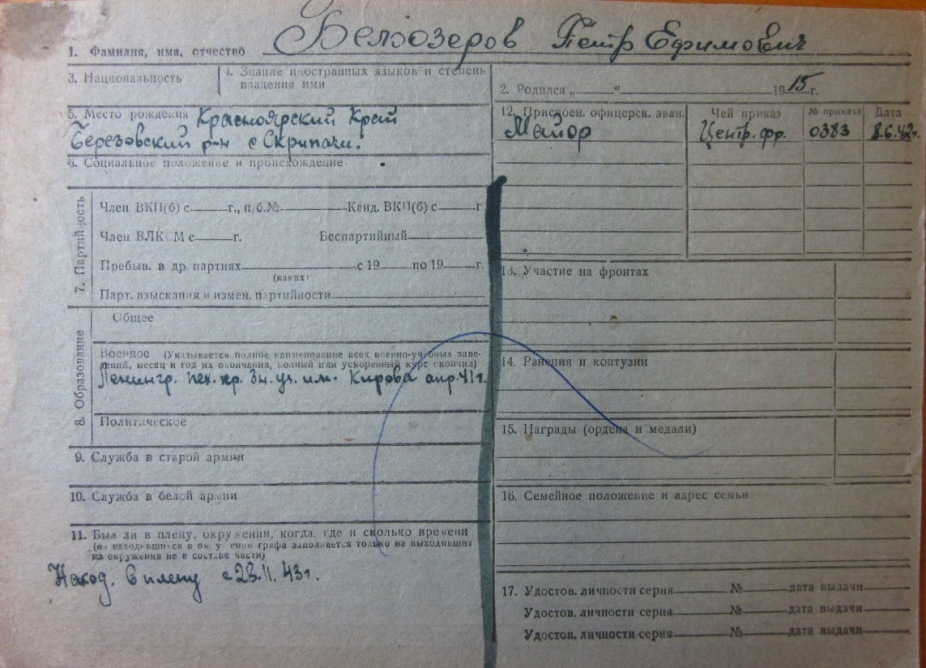 1. Фамилия, имя, отчество Белозеров Петр Ефимович
3. Национальность
4. Знание иностранных языков и степень
владения ими
2. Родился „ “ 1915 г.
5. Место рождения Красноярский Край
Березовский р-н с Скрипачи.
6. Социальное положение и происхождение
7. Партийность
Член ВКП(б) с г., п/б.№ Канд. ВКП(б) с г
Член ВЛКСМ с г. Беспартийный
Пребыв. в др. партиях с 19 по 19 г.
(каких)
Парт. взыскания и измен. партийности
8 Образование
Общее
Военное (Указывается полное наименование всех военно-учебных заве-
дений, месяц и год их окончания, полный или ускоренный курс окончил)
Ленингр. пех. кр. Зн. уч. им. Кирова апр. 41 г.
Политическое
9. Служба в старой армии
10. Служба в белой армии
11. Был ли в плену, окружении, когда, где и сколько времени
(на находившихся в окружении графа заполняется только на выходивших
из окружения не в составе части)
Наход. в плену с 23.11.43 г.
12. Присвоен. офицерск. зван. Чей приказ № приказа Дата
Майор Центр. фр. 0383 8.6.43г.
13. Участие на фронтах
14. Ранения и контузии
15. Награды (ордена и медали)
16. Семейное положение и адрес семьи
17. Удостов. личности серия № дата выдачи
Удостов. личности серия № дата выдачи
Удостов. личности серия № дата выдачи